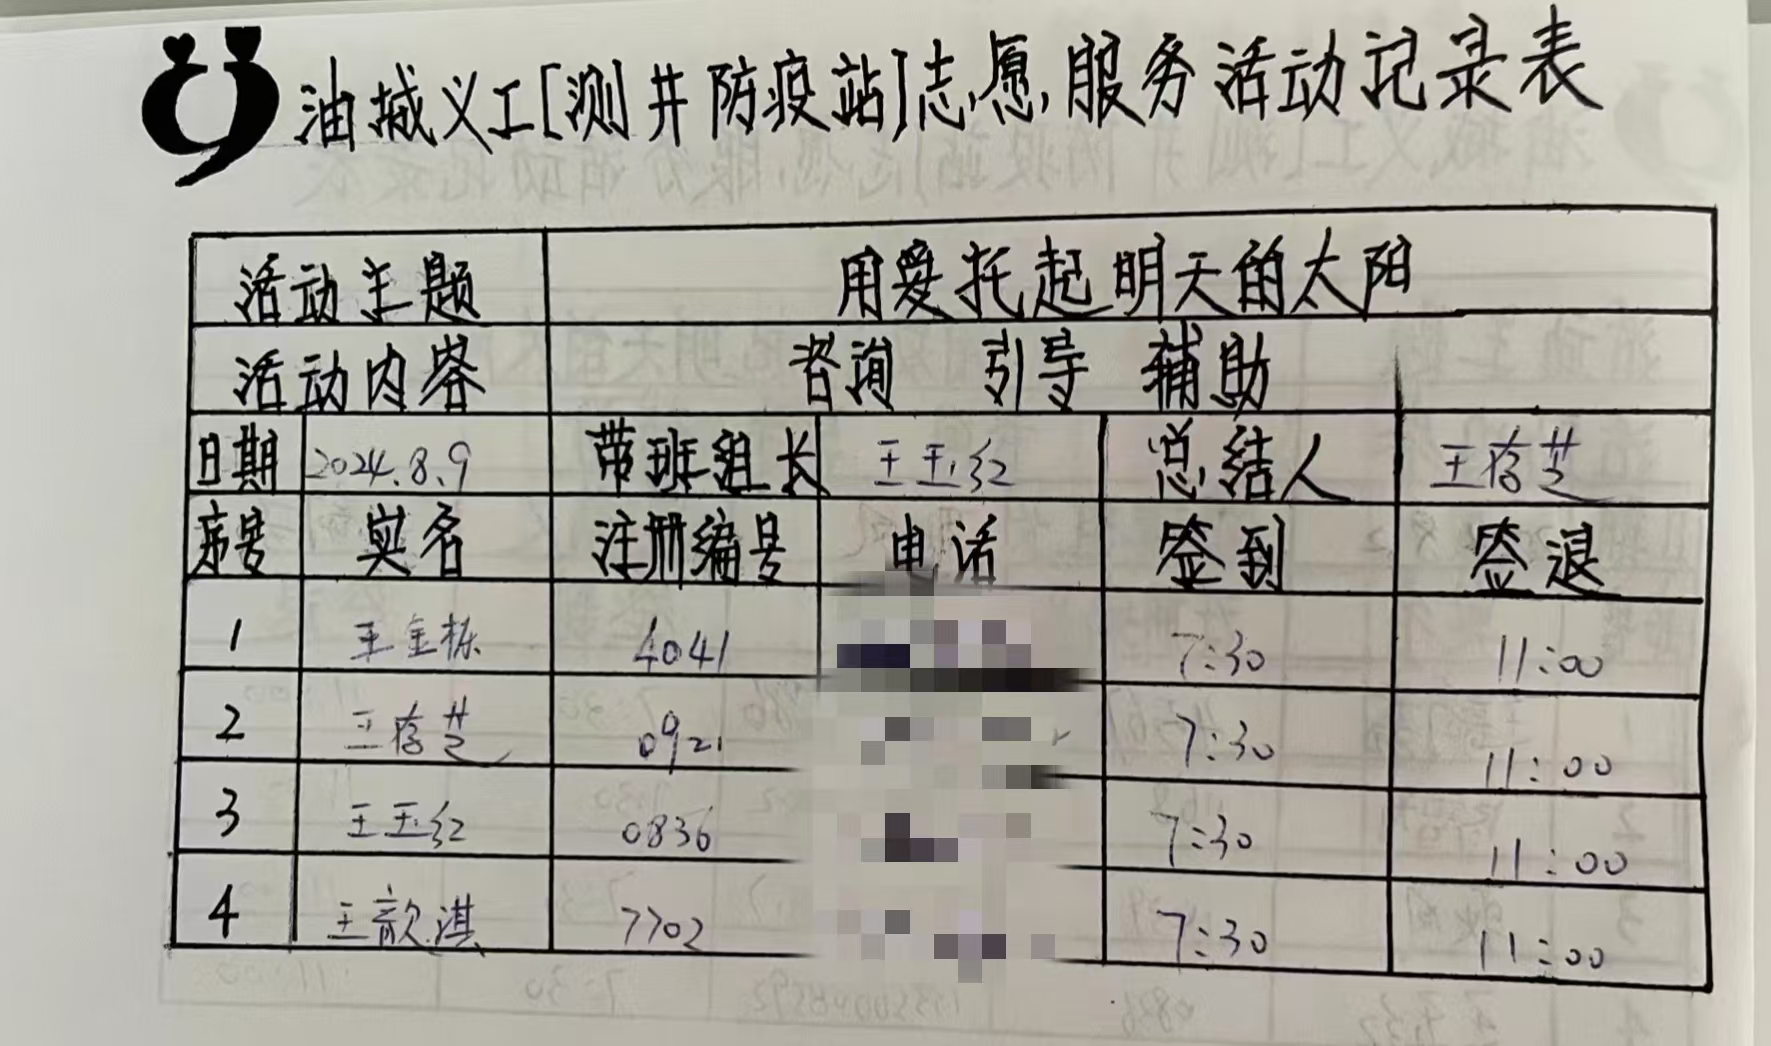 油城义工[测井防疫站]志愿服务活动记录表
活动主题 用爱托起明天的太阳
活动内容 咨询 引导 辅助
日期 2024.8.9 带班组长 王玉红 总结人 王存芝
序号 实名 注册编号 电话 签到 签退
1 王金栋 4041 7:30 11:00
2 王存芝 0921 7:30 11:00
3 王玉红 0836 7:30 11:00
4 王歆淇 7702 7:30 11:00